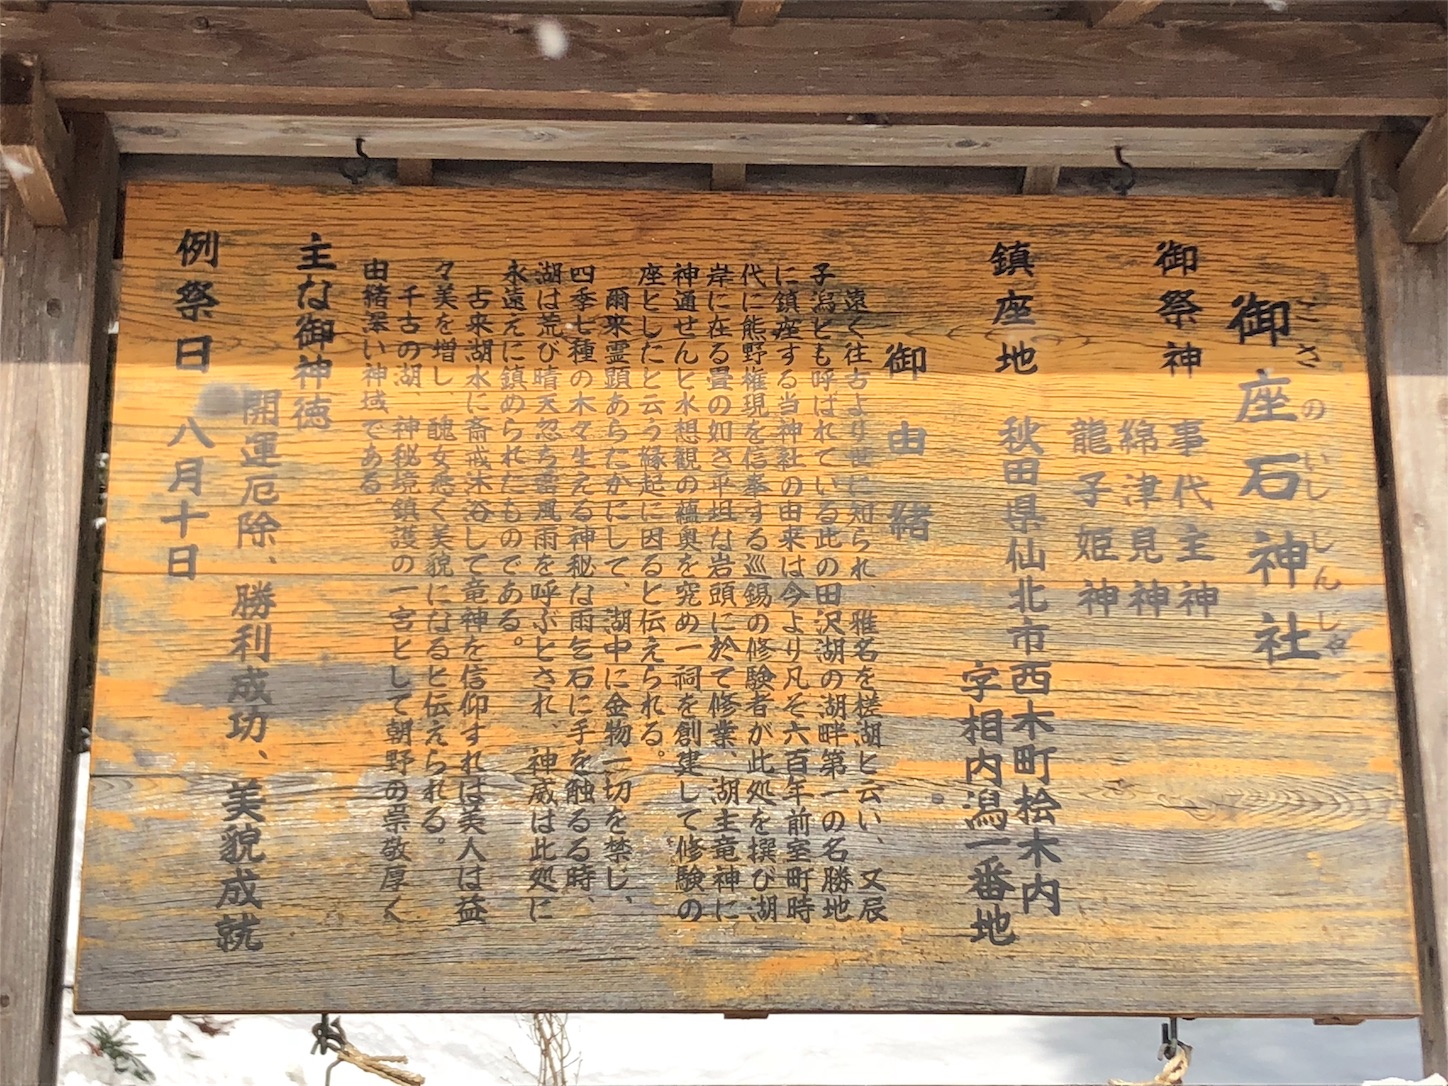 ござのいしじんじゃ
御座石神社
御祭神
事代主神
綿津見神
龍子姫神
鎮座地 秋田県仙北市西木町桧木内
字相内潟一番地
御由緒
遠く往古より世に知られ、雅名を槎湖と云い、又辰
子潟とも呼ばれている此の田沢湖の湖畔第一の名勝地
に鎮座する当神社の由来は今より凡そ六百年前室町時
代に熊野権現を信奉する巡錫の修験者が此処を撰び湖
岸に在る畳の如き平坦な岩頭に於て修業、湖主竜神に
神通せんと水想観の蘊奥を究め一祠を創建して修験の
座としたと云う縁起に因ると伝えられる。
爾来霊顕あらたかにして、湖中に金物一切を禁じ、
四季七種の木々生える神秘な雨乞石に手を触る時、
湖は荒び晴天忽ち雷風雨を呼ぶとされ、神威は此処に
永遠えに鎮められたものである。
古来湖水に斎戒沐浴して竜神を信仰すれば美人は益
々美を増し、醜女悉く美貌になると伝えられる。
千古の湖、神秘境鎮護の一宮として朝野の崇敬厚く
由緒深い神域である。
主な御神徳
開運厄除、勝利成功、美貌成就
例祭日 八月十日